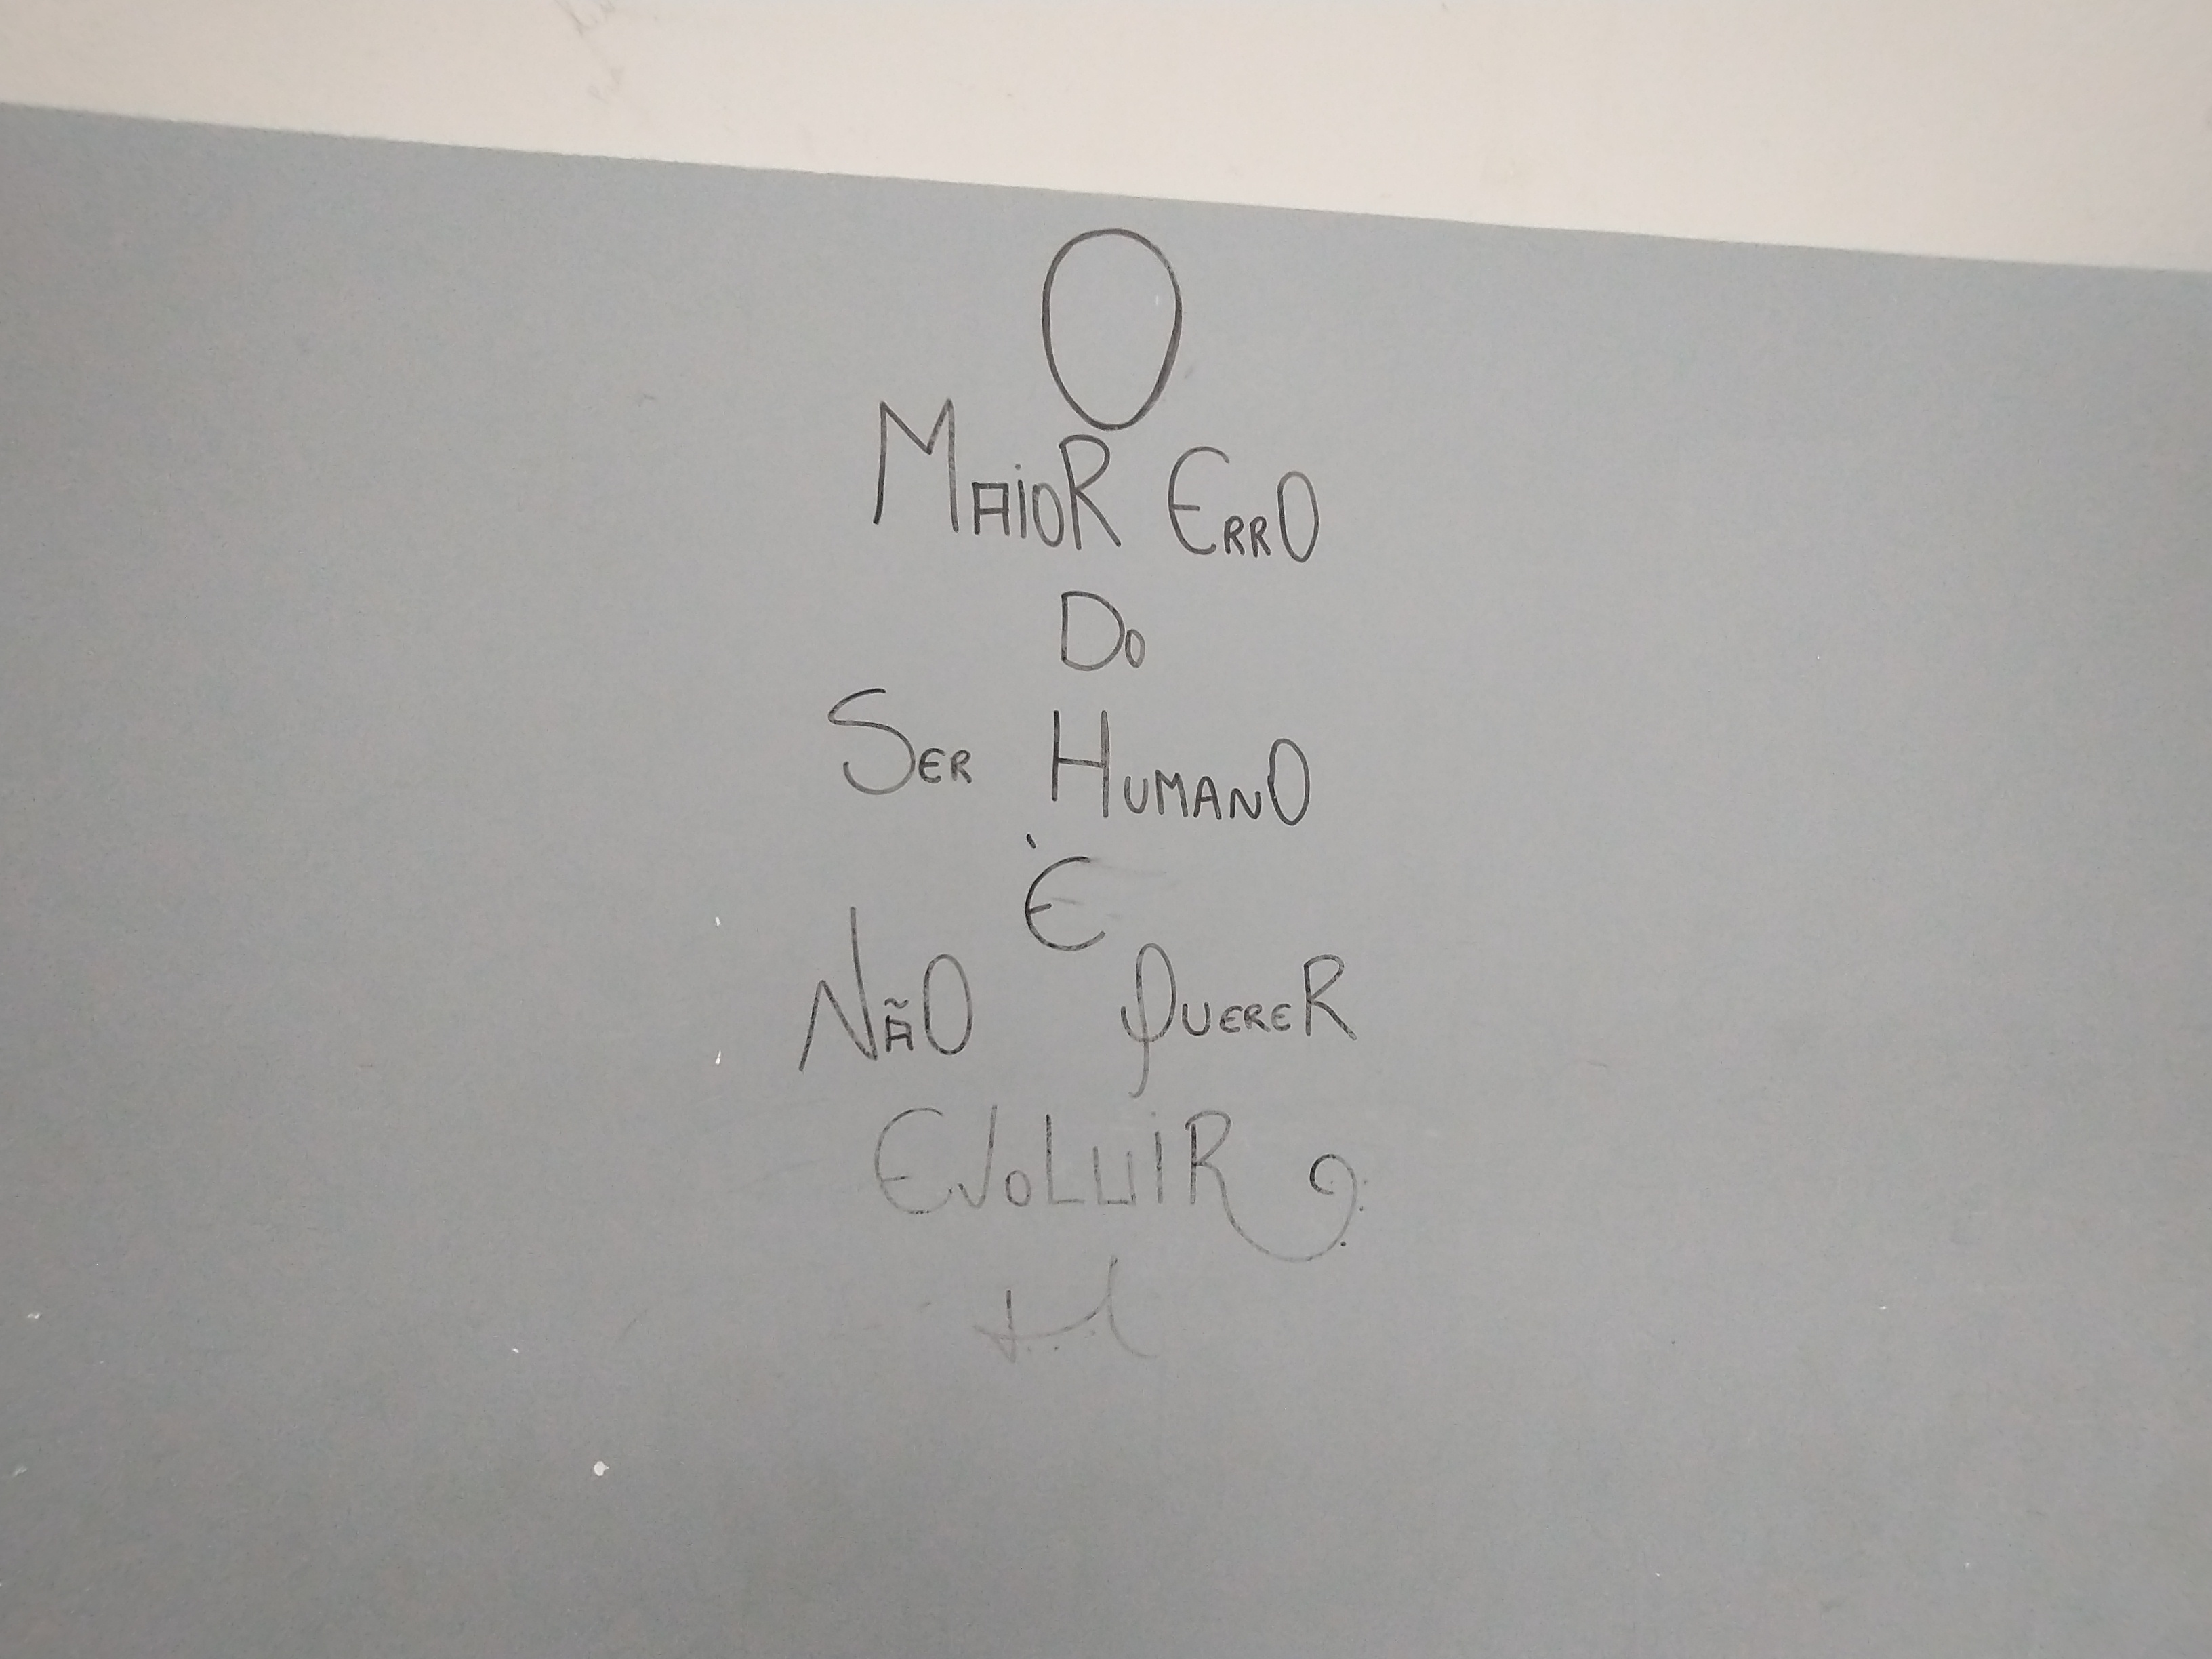 O
MAiOR ERRO
DO
SER HUMANO
È
NÃO QUERER
EVOLUIR